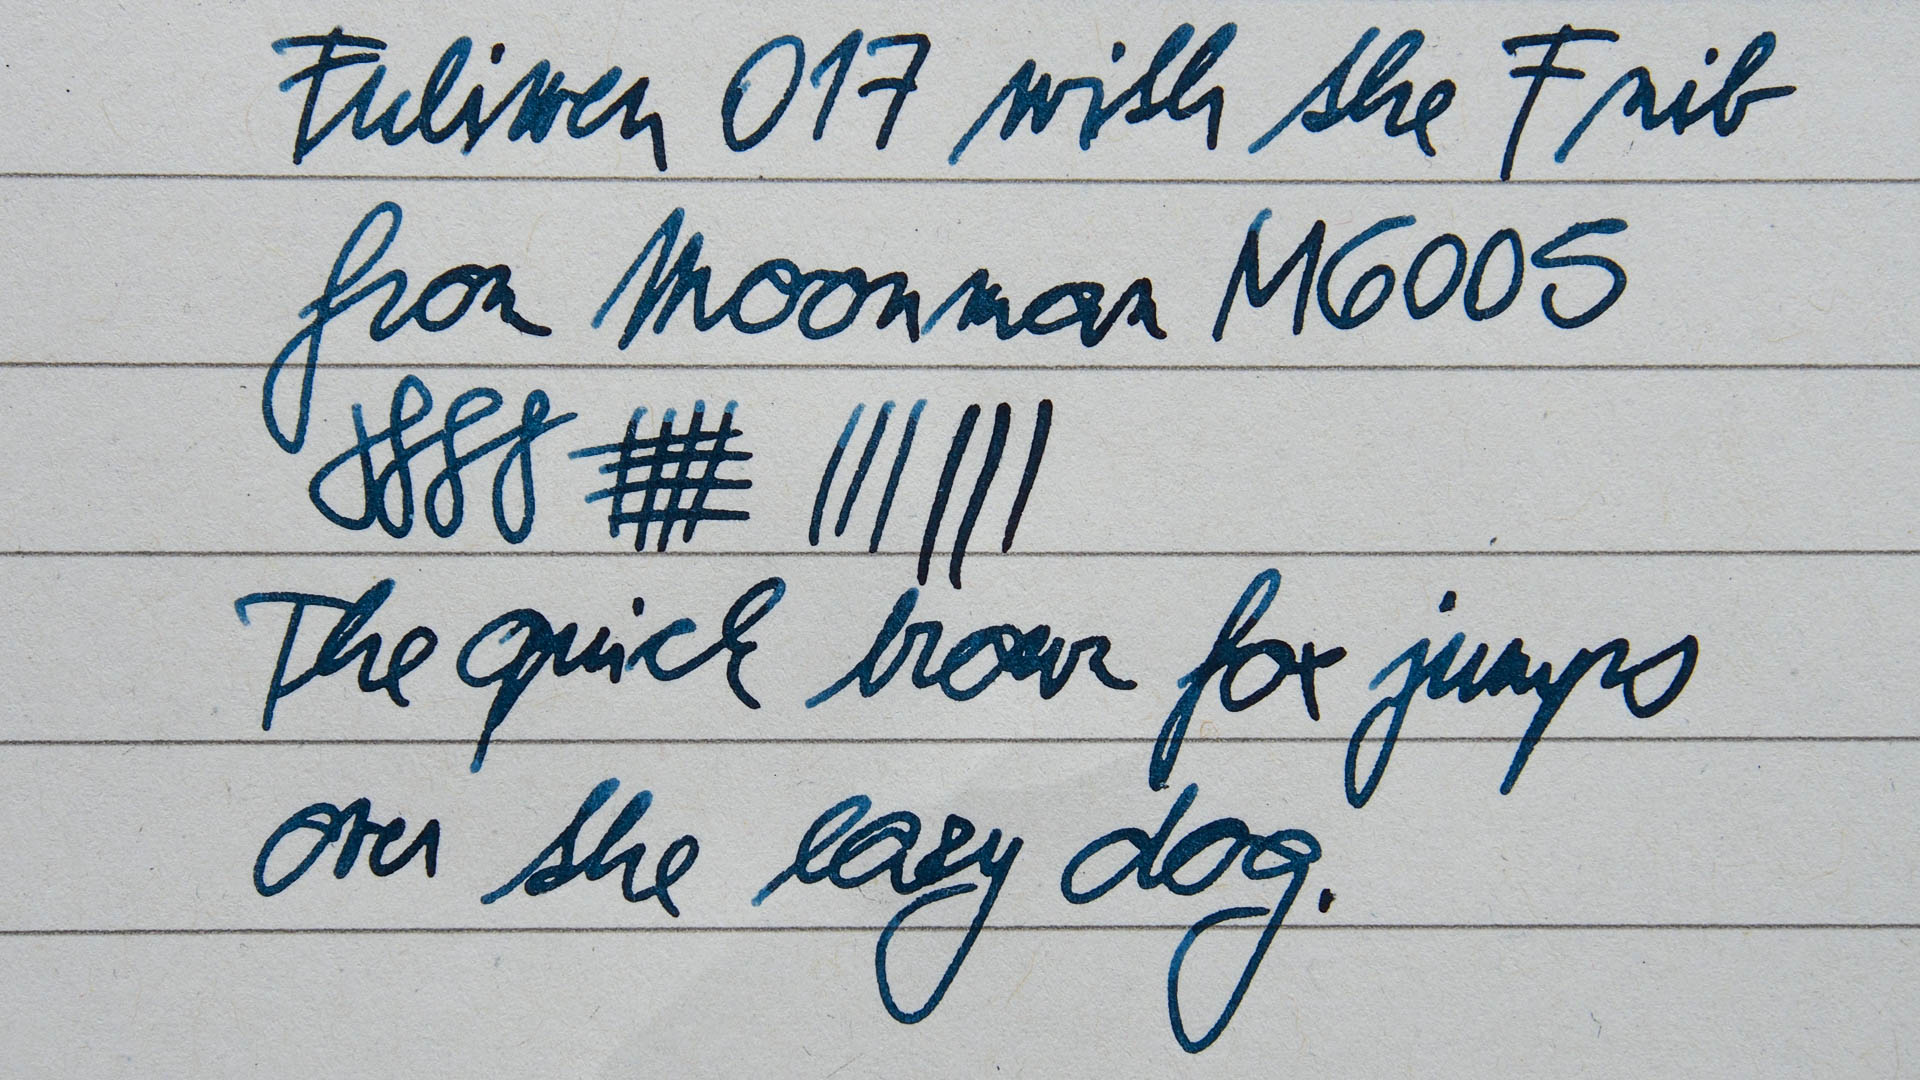 Fuliwen 017 with the F nib
from Moonman M600S
The quick brown fox jumps
over the lazy dog.